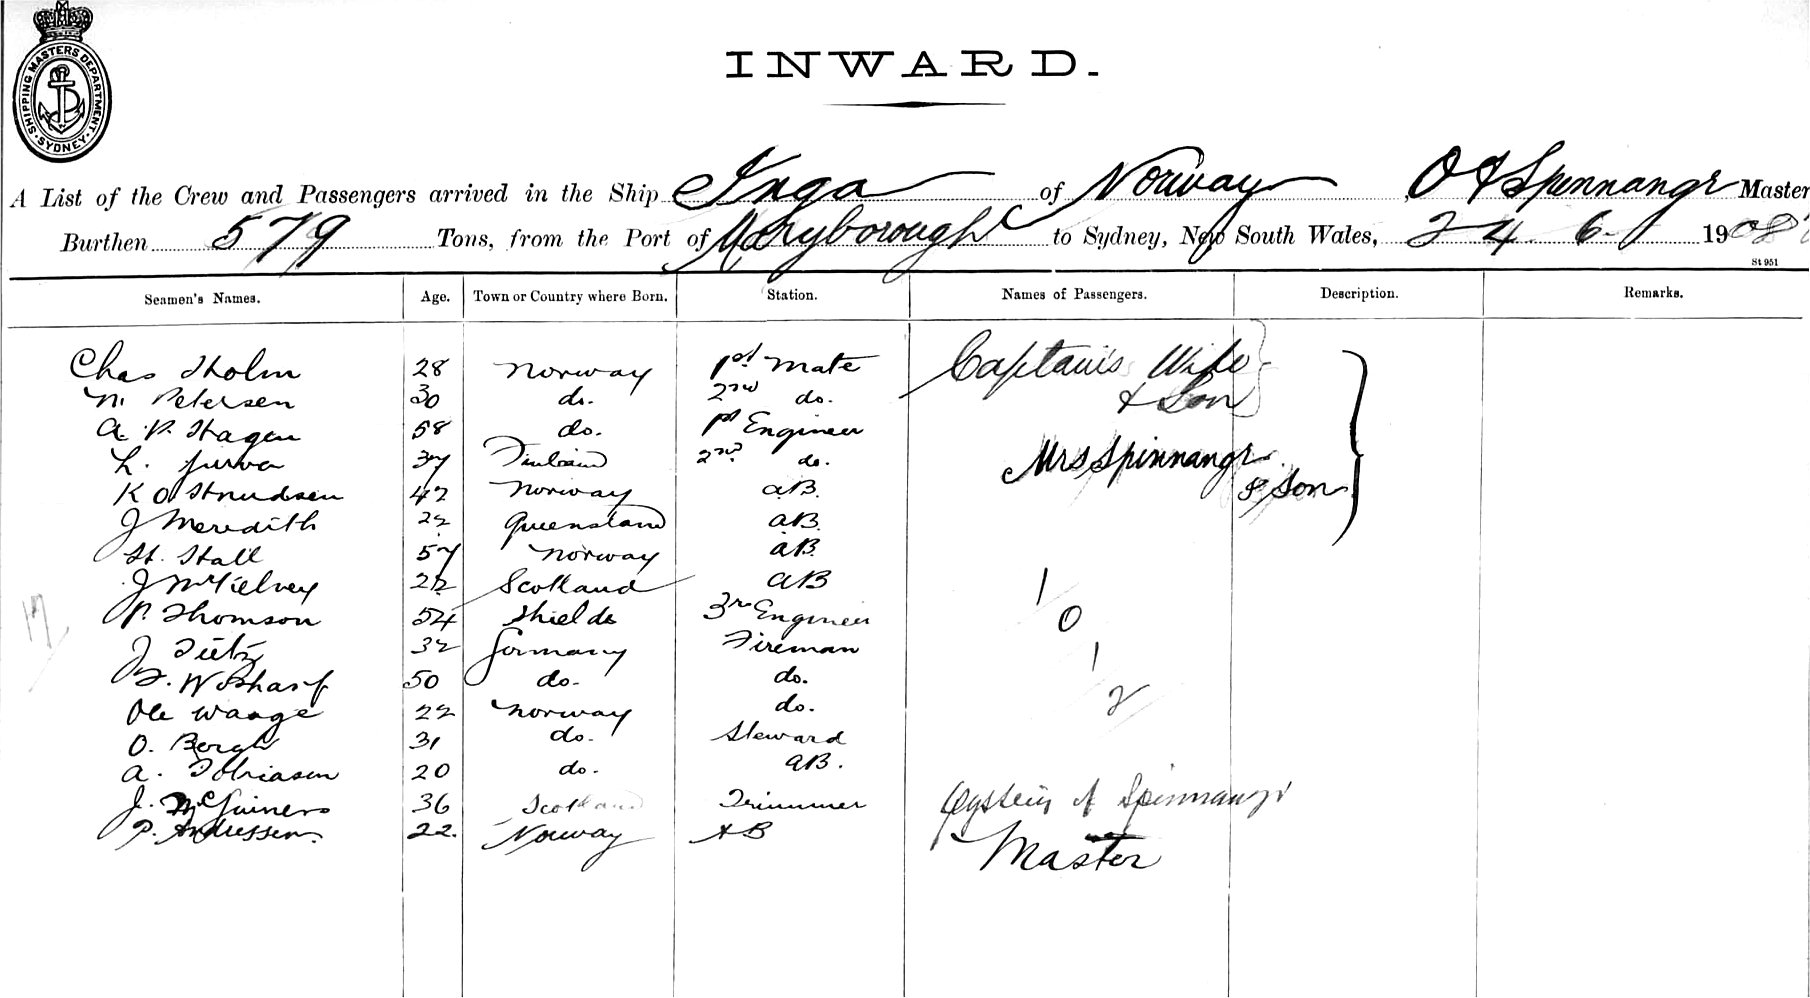 SHIPPING MASTERS DEPARTMENT · SYDNEY ·
INWARD.
A List of the Crew and Passengers arrived in the Ship Inga of Norway, O A Spinnangr Master
Burthen 579 Tons, from the Port of Maryborough to Sydney, New South Wales, 24 6 1908
St 951
Seamen's Names. Age. Town or Country where Born. Station. Names of Passengers. Description. Remarks.
Chas Holm 28 Norway 1st Mate Captain's Wife
N. Petersen 30 do. 2nd do. & Son
A. P. Hagen 58 do. 1st Engineer
L. Jurva 37 Finland 2nd do. Mrs Spinnangr
K O Knudsen 42 Norway AB. & Son
J Meredith 22 Queensland AB.
H. Hall 57 Norway AB.
J 22 Scotland AB 1
P. Thomson 54 Shields 3rd Engineer 0
17
J Tietz 32 Germany Fireman 1
50 do. do.
Ole Waage 22 Norway do. 2
O. Bergh 31 do. Steward
A. Tobiasen 20 do. AB.
J. McGuiness 36 Scotland Trimmer Øystein A Spinnangr
P. Andressen. 22. Norway AB Master